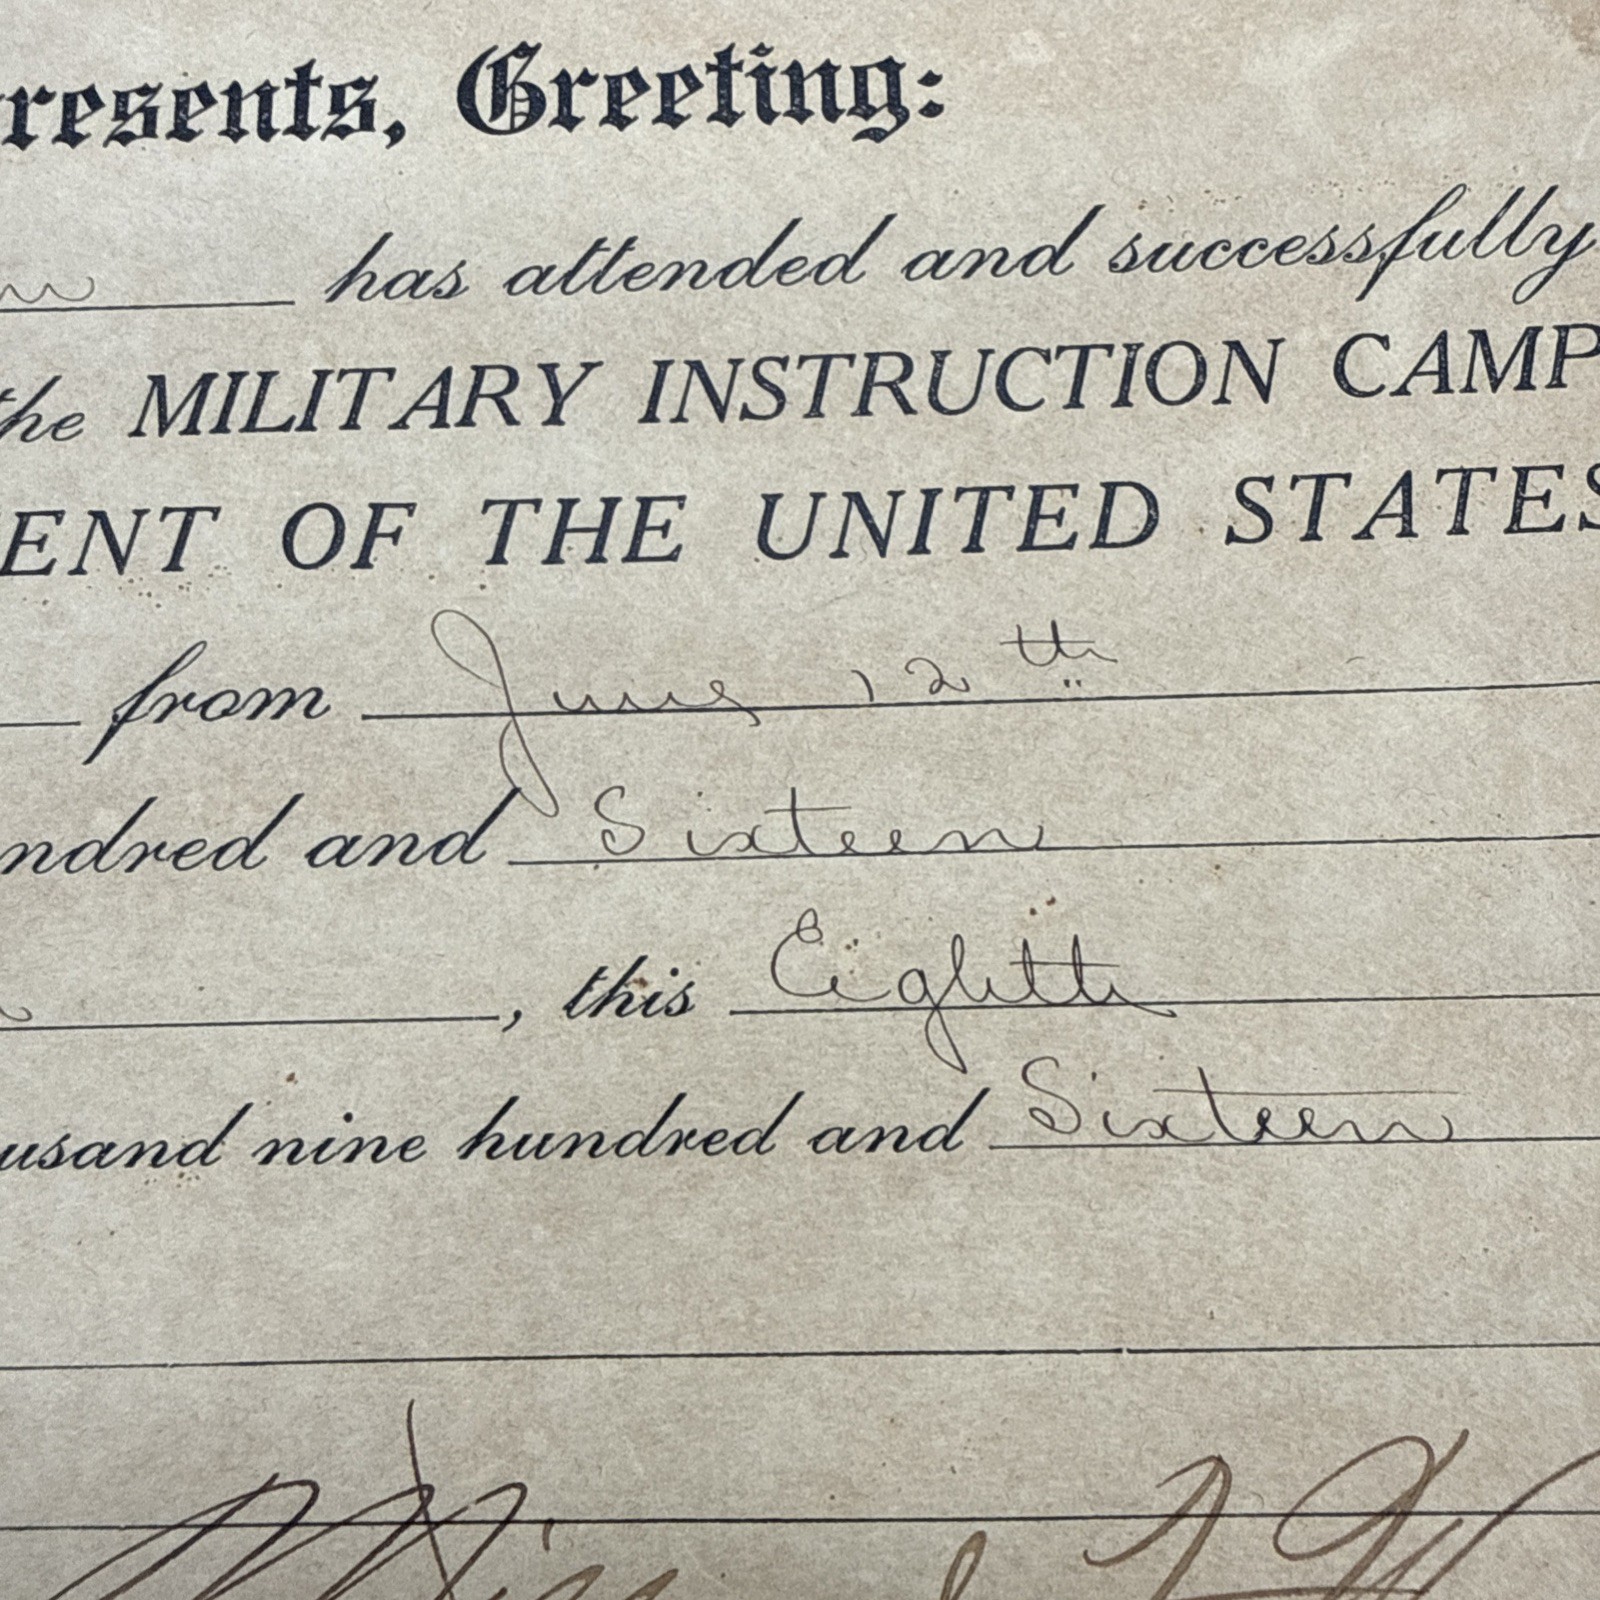 resents, Greeting:
has attended and successfully
the MILITARY INSTRUCTION CAMP
ENT OF THE UNITED STATES
from June 12th
ndred and Sixteen
, this Eighth
usand nine hundred and Sixteen